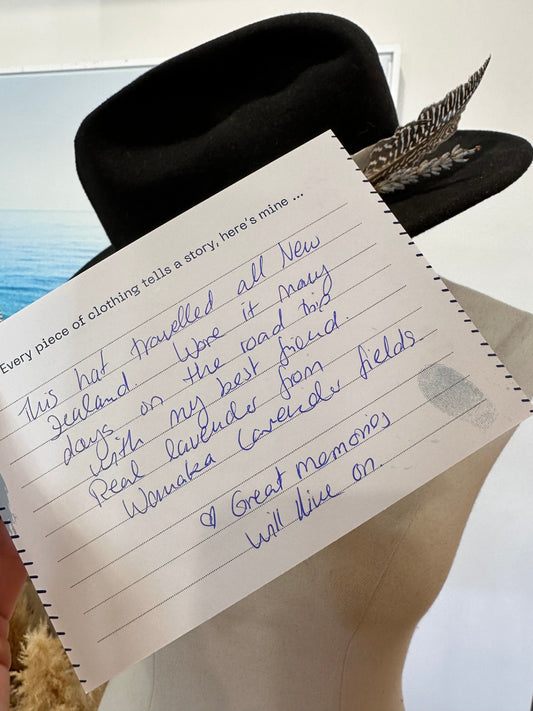 Every piece of clothing tells a story, here's mine ...
This hat travelled all New
Zealand. Wore it many
days on the road trip
with my best friend.
Real lavender from
Wanaka lavender fields.
♡ Great memories
will live on.